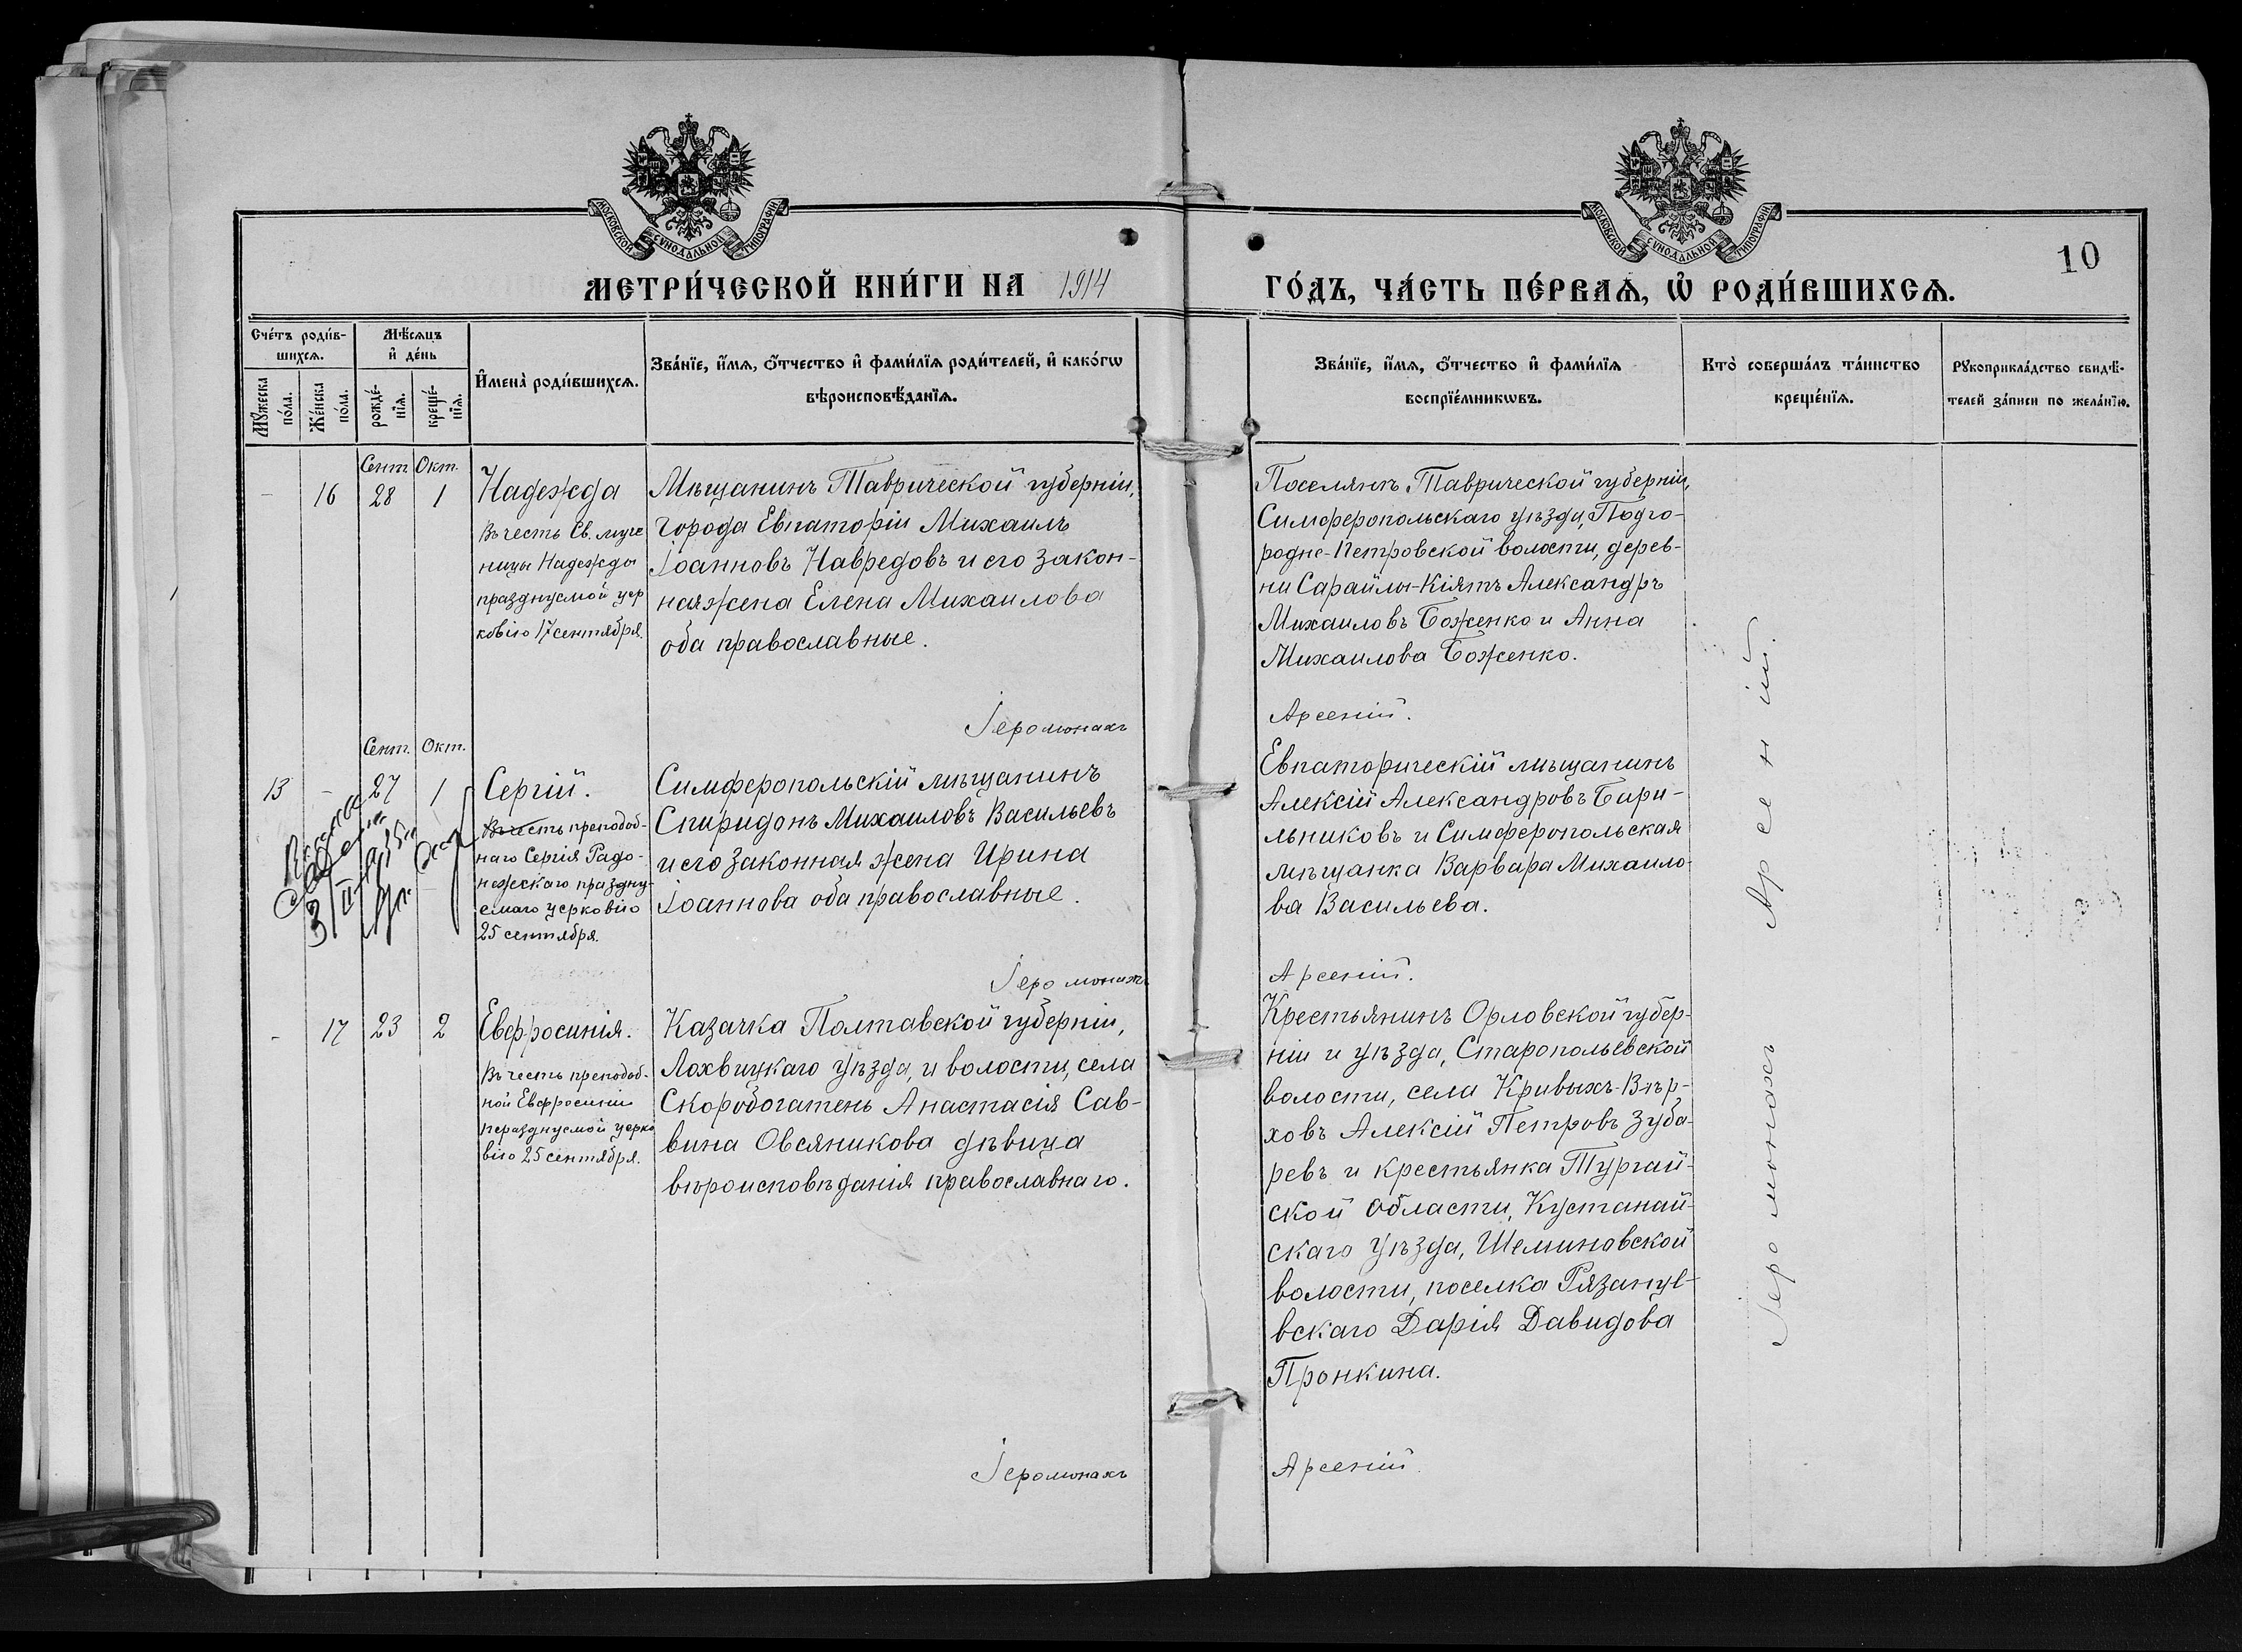 МОСКОВСКОЙ СѴНОДАЛЬНОЙ ТИПОГРАФІИ
МОСКОВСКОЙ СѴНОДАЛЬНОЙ ТИПОГРАФІИ
10
МЕТРИ́ЧЕСКОЙ КНИ́ГИ НА 1914 ГО́ДЪ, ЧА́СТЬ ПЕ́РВАѦ, Ѡ҆ РОДИ́ВШИХСѦ.
Сче́тъ роди́в-
шихсѧ.
Мꙋжеска по́ла.
Же́нска по́ла.
Мѣ́сѧцъ
и҆ де́нь
рожде́-
нїѧ.
креще́-
нїѧ.
И҆мена̀ роди́вшихсѧ.
Зва́нїе, и҆́мѧ, ѻ҆́тчество и҆ фами́лїѧ роди́телей, и҆ како́гѡ
вѣроисповѣ́данїѧ.
Зва́нїе, и҆́мѧ, ѻ҆́тчество и҆ фами́лїѧ
воспрїе́мникѡвъ.
Кто̀ соверша́лъ та́инство
креще́нїѧ.
Рꙋкоприкла́дство свидѣ́-
телей за́писи по жела́нїю.
Сент Окт.
- 16 28 1
Надежда
Въ честь Св. муче
ницы Надежды
празднуемой цер
ковію 17 сентября.
Мѣщанинъ Таврической губерніи,
города Евпаторіи Михаилъ
Іоанновъ Навредовъ и его закон-
ная жена Елена Михаилова
оба православные.
Іеромонахъ
Поселянъ Таврической губерніи,
Симферопольскаго уѣзда, Подго-
родне-Петровской волости, дерев-
ни Сарайлы-Кіятъ Александръ
Михаиловъ Боженко и Анна
Михаилова Боженко.
Арсеній.
Сент. Окт.
13 - 27 1
Сергій.
Въ честь преподоб-
наго Сергія Радо-
нежскаго праздну-
емаго церковію
25 сентября.
Симферопольскій мѣщанинъ
Спиридонъ Михаиловъ Васильевъ
и его законная жена Ирина
Іоаннова оба православные.
Іеромонахъ
Евпаторическій мѣщанинъ
Алексій Александровъ Бири-
льниковъ и Симферопольская
мѣщанка Варвара Михаило-
ва Васильева.
Арсеній.
- 17 23 2
Евфросинія.
Въ честь преподоб-
ной Евфросиніи
празднуемой церко
вію 25 сентября.
Казачка Полтавской губерніи,
Лохвицкаго уѣзда, и волости, села
Скоробогатень Анастасія Сав-
вина Овсяникова дѣвица
вѣроисповѣданія православнаго.
Іеромонахъ
Крестьянинъ Орловской губер-
ніи и уѣзда, Старопольевской
волости, села Кривыхъ-Вѣр-
ховъ Алексій Петровъ Зуба-
ревъ и крестьянка Тургай-
ской области, Кустанай-
скаго уѣзда, Шеминовской
волости, поселка Рязануе-
вскаго Дарія Давидова
Пронкина.
Арсеній
Іеромонахъ Арсеній.